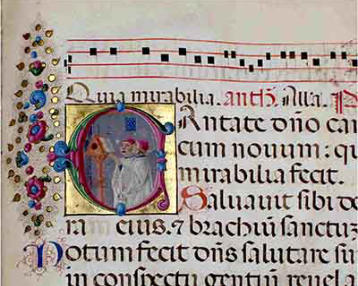 Quia mirabilia. antħ. Alla. P
CAntate dño can
cum nouum: qu
mirabilia fecit.
Saluauit sibi de
ra eius. ⁊ brachiū sanctuz
Notum fecit dñs salutare su
in conspectu gentiū reuela